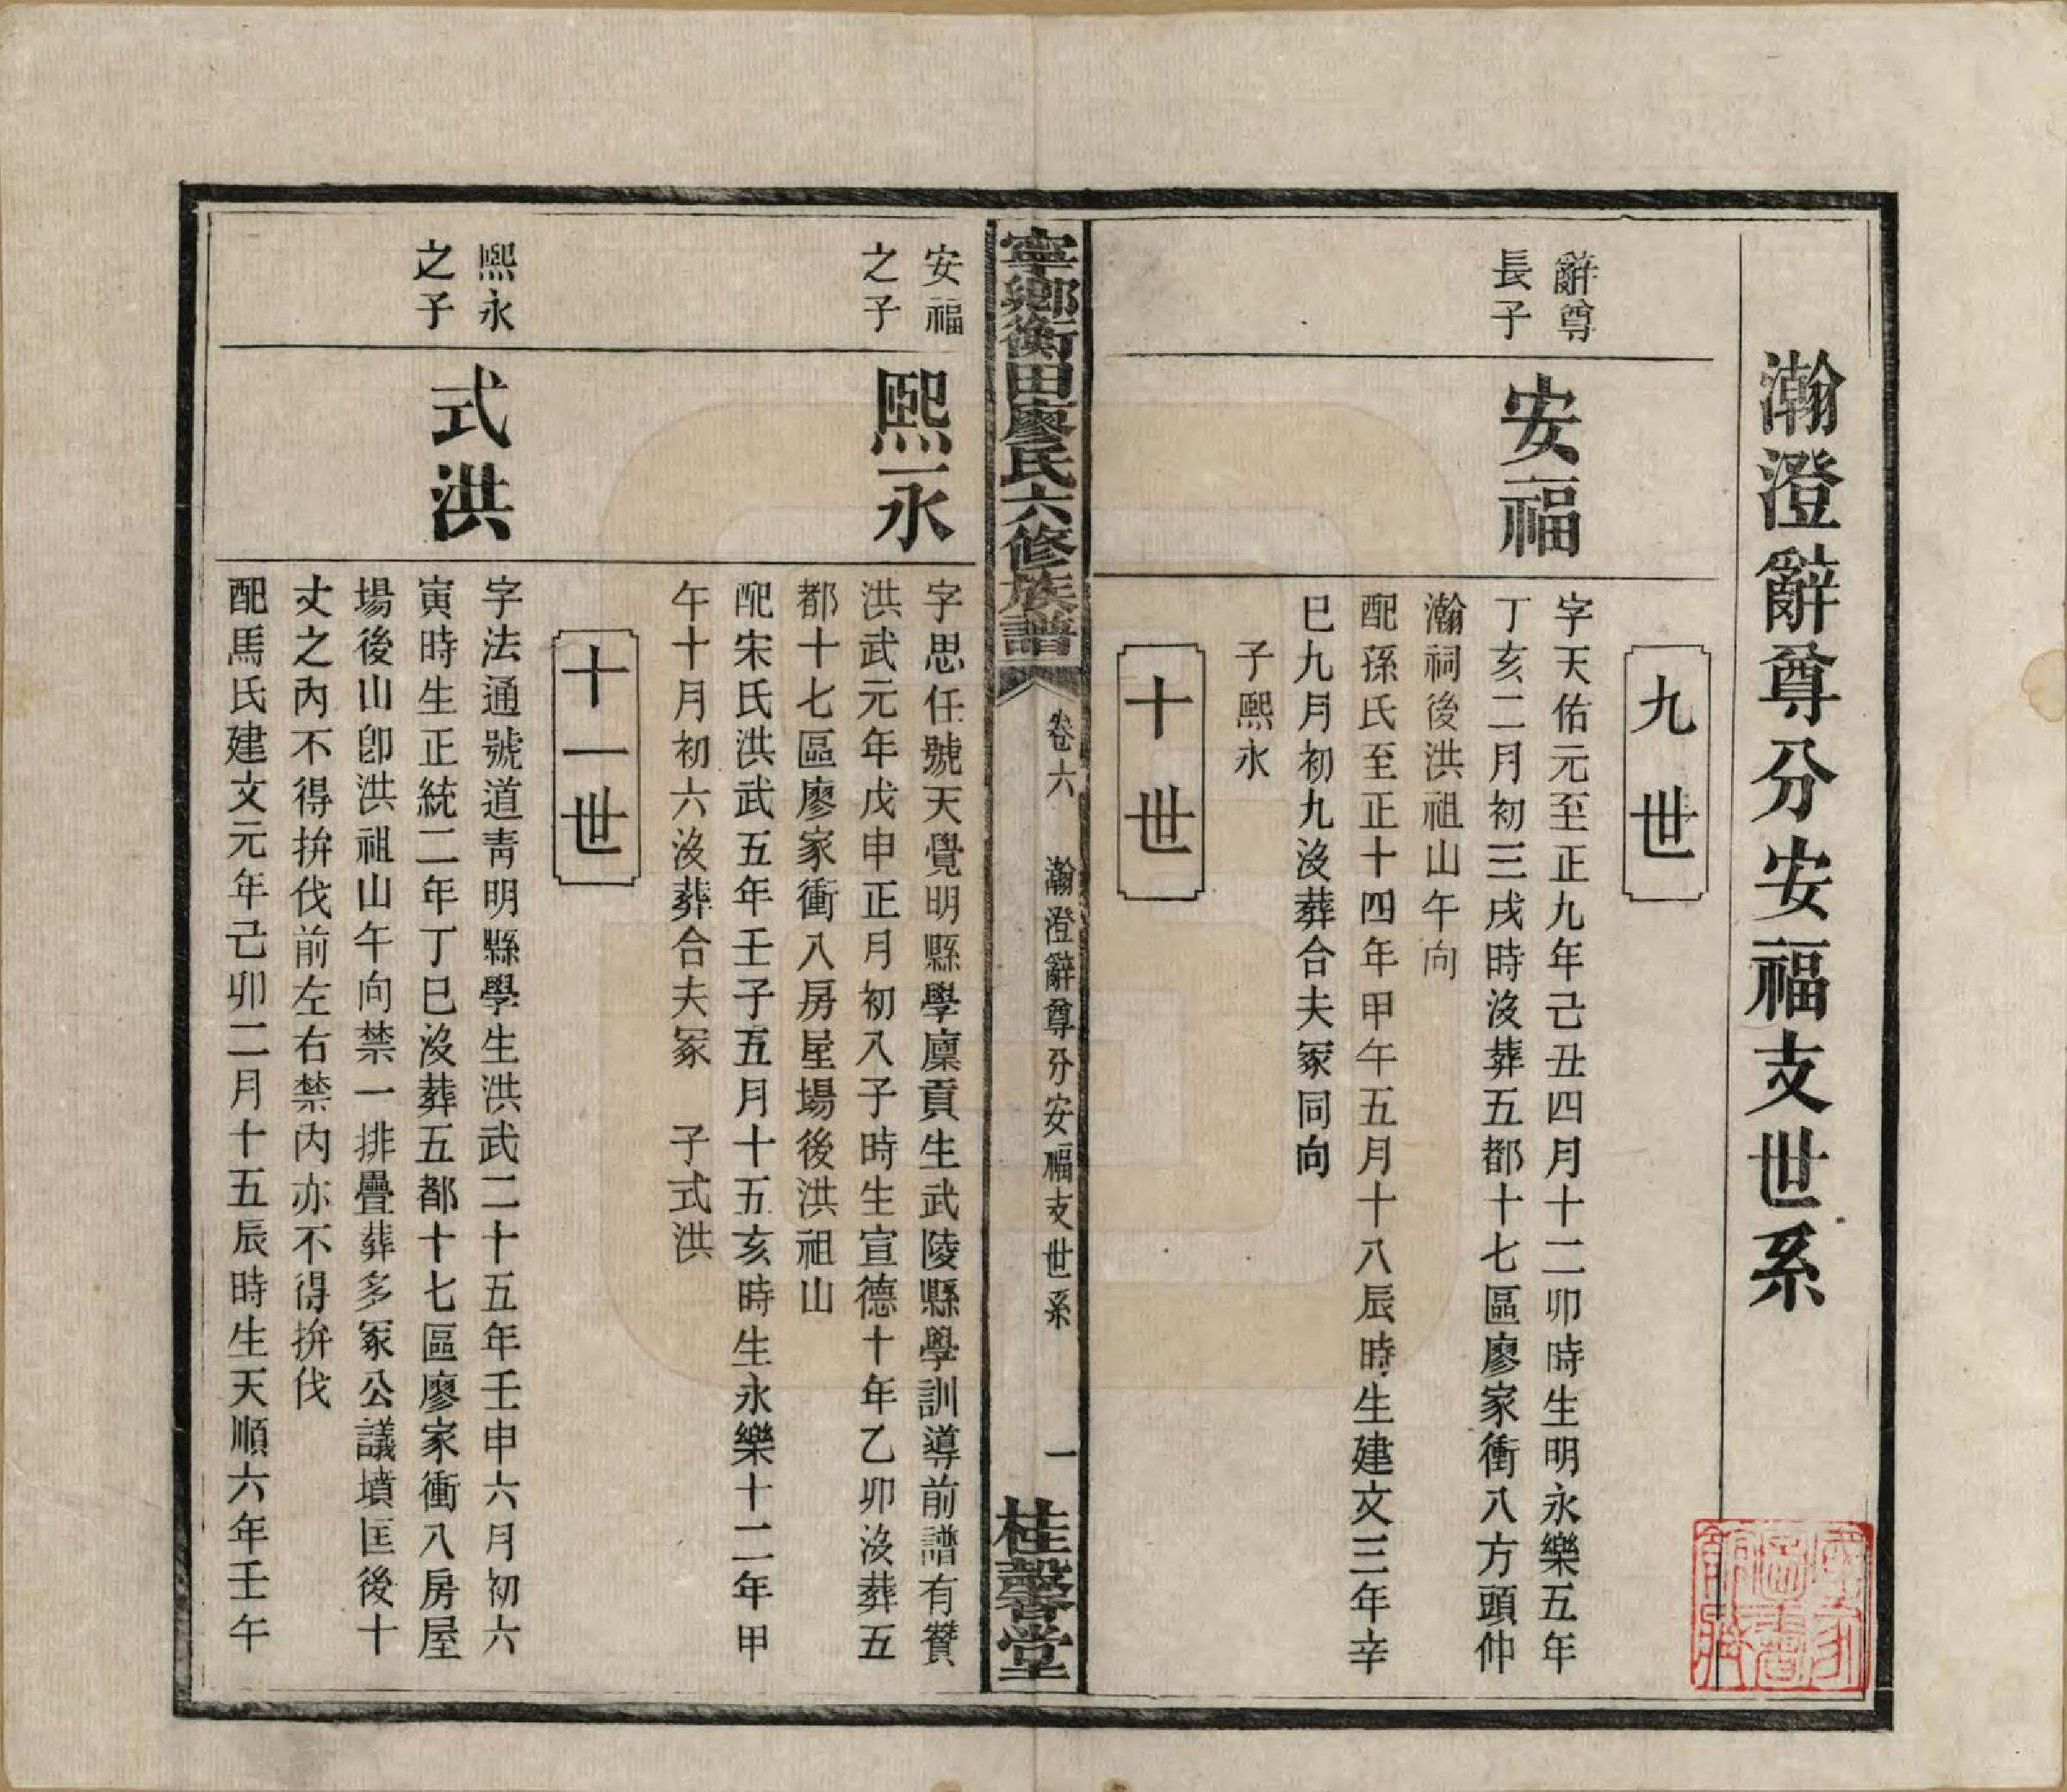 瀚澄辭尊分安福支世系
九世
辭尊
長子
安福
字天佑元至正九年己丑四月十二卯時生明永樂五年
丁亥二月初三戌時沒葬五都十七區廖家衝八方頭仲
瀚祠後洪祖山午向
配孫氏至正十四年甲午五月十八辰時生建文三年辛
巳九月初九沒葬合夫冢同向
子熙永
十世
寧鄉衡田廖氏六修族譜
卷六
瀚澄辭尊分安福支世系
一
桂馨堂
安福
之子
熙永
字思任號天覺明縣學廩貢生武陵縣學訓導前譜有贊
洪武元年戊申正月初八子時生宣德十年乙卯沒葬五
都十七區廖家衝八房屋場後洪祖山
配宋氏洪武五年壬子五月十五亥時生永樂十二年甲
午十月初六沒葬合夫冢 子式洪
十一世
熙永
之子
式洪
字法通號道青明縣學生洪武二十五年壬申六月初六
寅時生正統二年丁巳沒葬五都十七區廖家衝八房屋
場後山卽洪祖山午向禁一排疊葬多冢公議墳匡後十
丈之內不得拚伐前左右禁內亦不得拚伐
配馬氏建文元年己卯二月十五辰時生天順六年壬午
國家圖書館藏